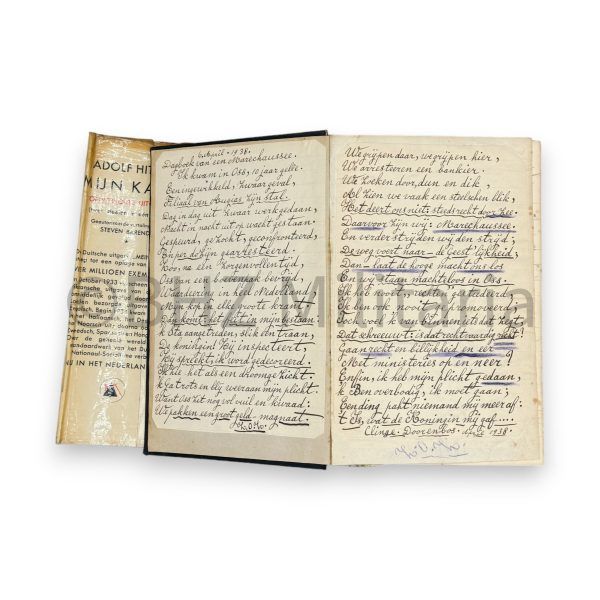 ADOLF HIT
MIJN KA
STEVEN BAREND
Duitsche uitgave
VER MILLIOEN EXEM
october 1933 verscheen
NU IN HET NEDERLAN
6 April - 1938.
Dagboek van een Marechaussee.
Ik kwam in Oss, 10 jaar gele.
Een ingewikkeld, zwaar geval,
Filiaal van Augias zijn stal.
Dag in dag uit zwaar werk gedaan,
Nacht in nacht uit op wacht gestaan.
Gespeurd, gezocht, geconfronteerd,
En per dozijn gearresteerd.
Zoo, na een zorgenvollen tijd,
Oss van een boevenpak bevrijd,
Waardeering in heel Nederland,
Mijn kop in elke groote krant;
Dan komt het fit in mijn bestaan:
Ik Sta aangetreden, slik een traan,
De koningin! Hij inspecteert,
Hij spreekt, ik word gedecoreerd.
Ik zie het als een droomgezicht.
Ik ga trots en blij weer aan mijn plicht.
Want Oss zit nog vol vuil en kwaad:
We pakken een groot geld-magnaat
We grijpen daar, we grijpen hier,
We arresteeren een bankier.
We zoeken door, dun en dik,
Al zien we vaak een steelschen blik,
Het deert ons niet: steeds recht door zee.
Daarvoor zijn wij: Marechaussee.
En verder strijden wij den strijd,
De weg voert naar - de geest'lijkheid;
Dan - laat de hooge macht ons los
En wij staan machteloos in Oss.
Ik heb nooit, rechten gestudeerd,
Ik ben ook nooit gepromoveerd,
Ook voel ik van binnen iets dat zegt,
Dat schreeuwt: is dat rechtvaardig recht?
Gaan recht en billijkheid en eer
Met ministeries op en neer?
Enfin, ik heb mijn plicht gedaan,
Ik Ben overbodig, ik moet gaan;
Een ding pakt niemand mij meer af:
't Is, wat de Koningin mij gaf....
Clinge Doorenbos. April 1938.
HZ Militaria